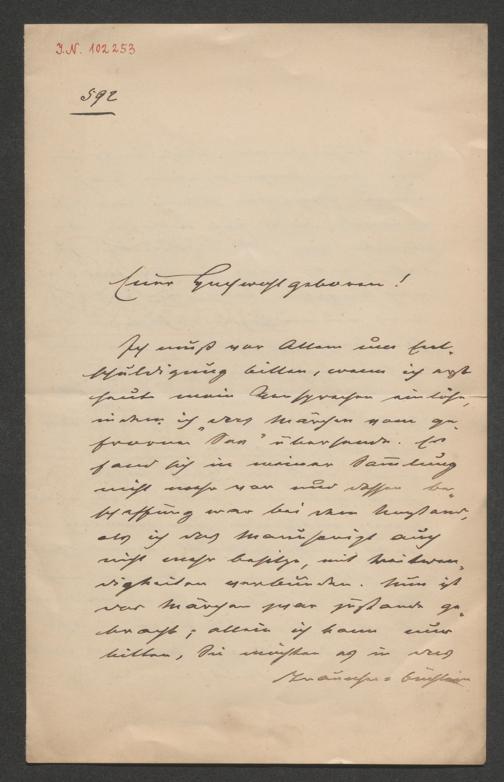 I.N. 102253
592
Euer Hochwohlgeboren!
Ich muß vor Allem um Ent-
schuldigung bitten, wenn ich erst
heute mein Versprechen einlöse,
indem ich das Märchen vom ge-
frornen "See" übersende. Es
fand sich in meiner Sammlung
nicht mehr vor und dessen Be-
schaffung war bei dem Umstand,
als ich das Manuscript auch
nicht mehr besitze, mit Weitwen-
digkeiten verbunden. Nun ist
das Märchen zwar zustande ge-
bracht; allein ich kann nur
bitten, Sie möchten es in das